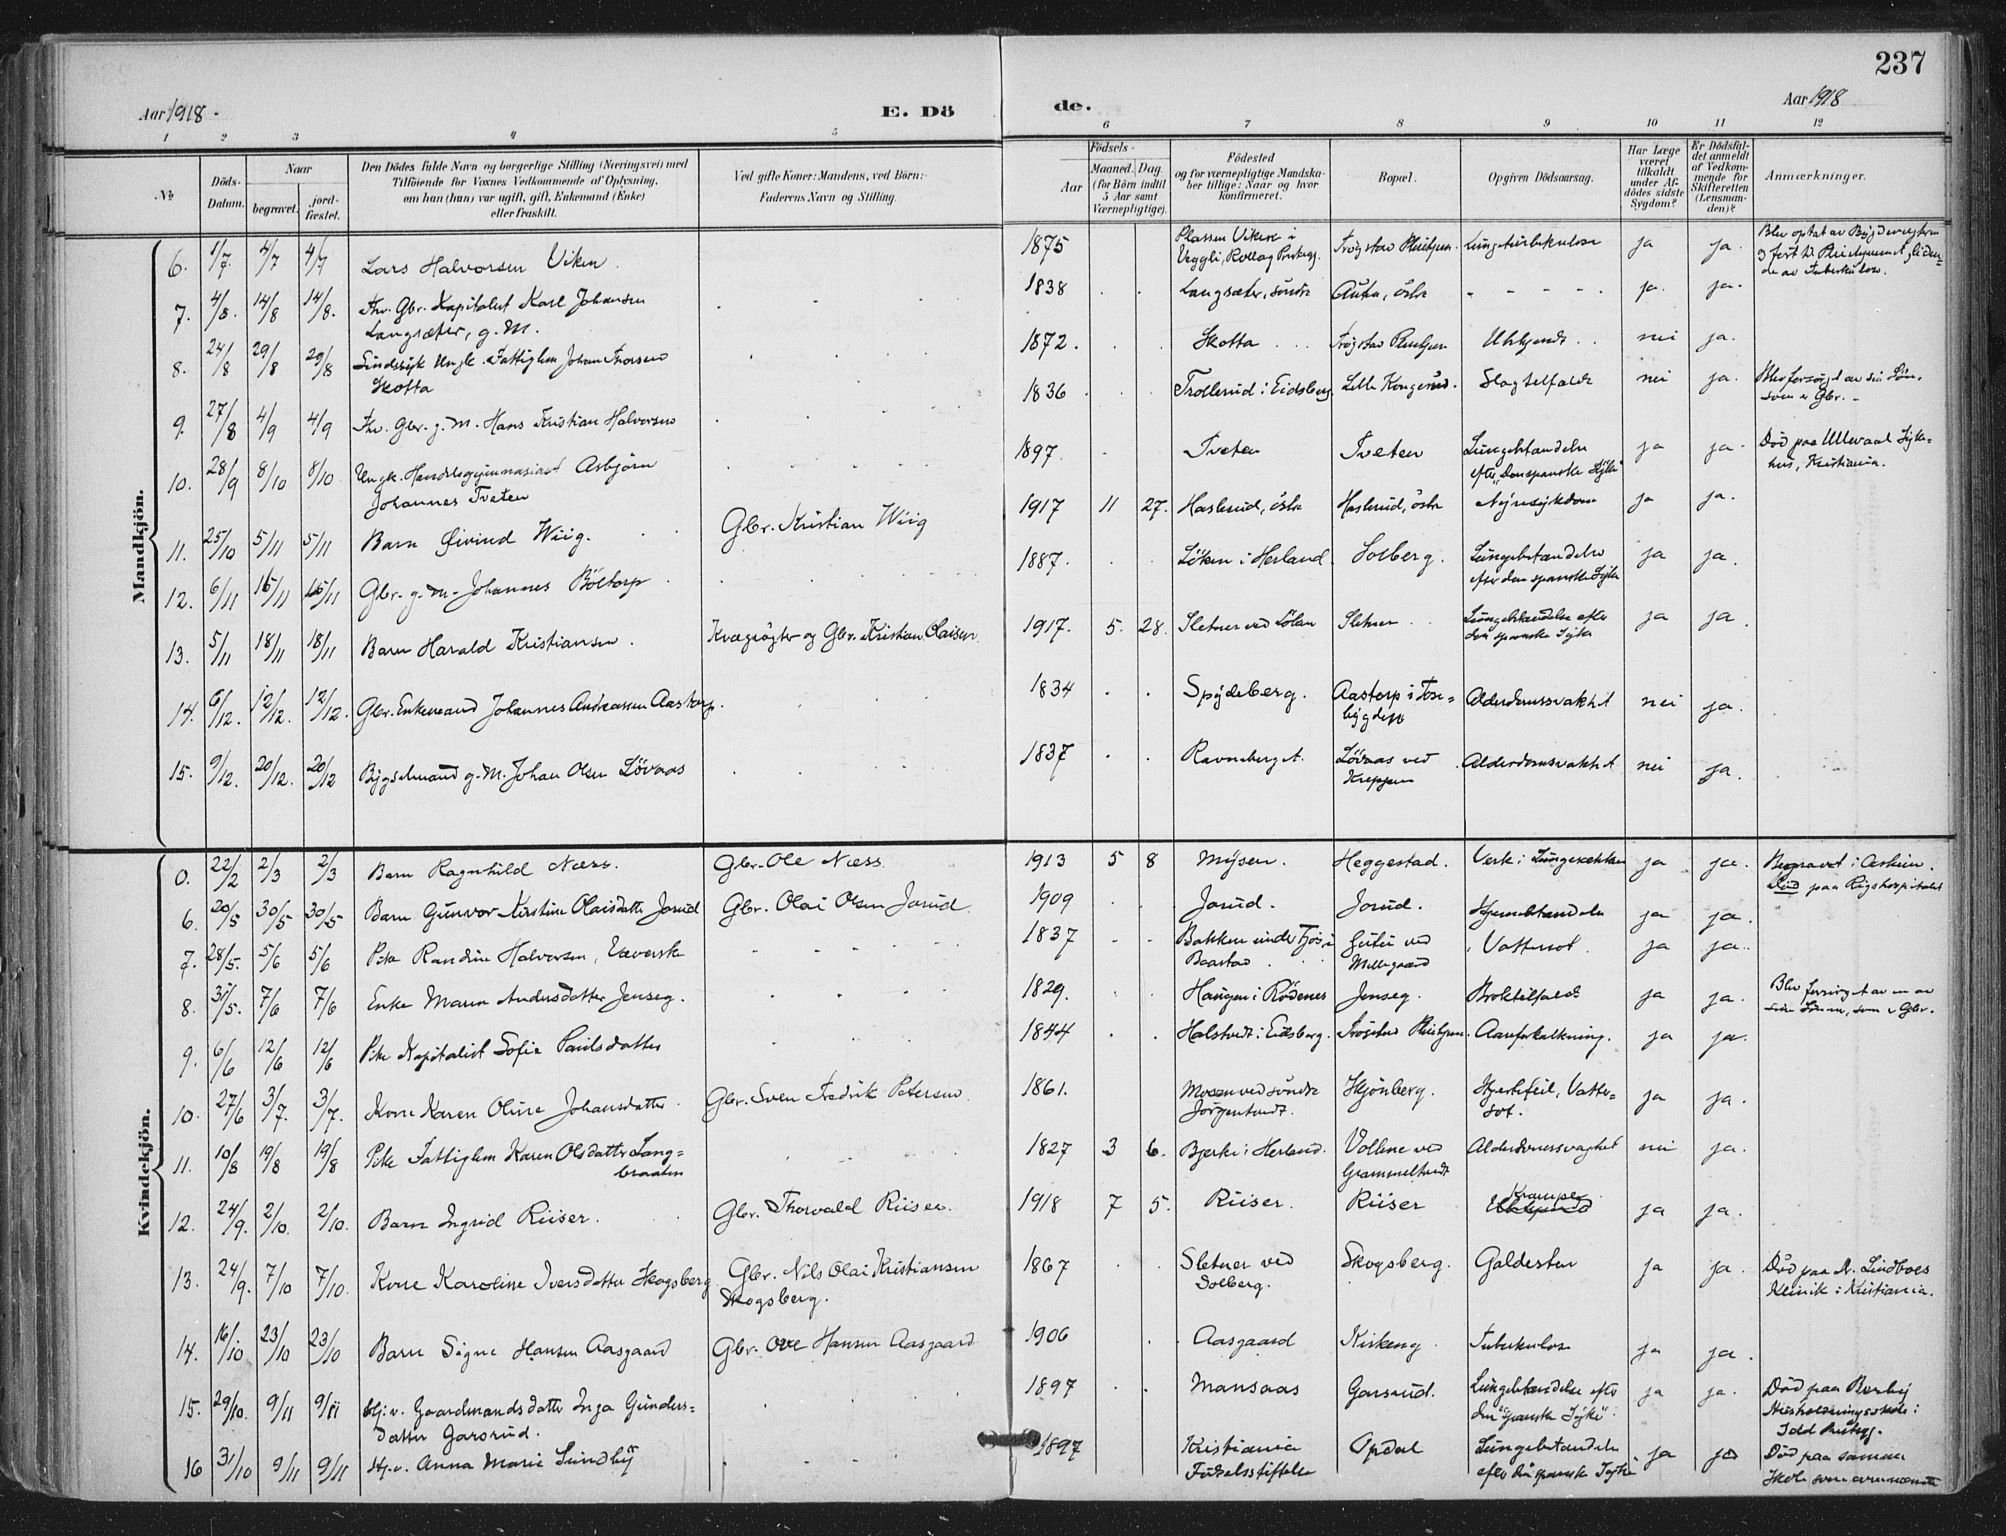 237
Aar 1918.
E. Dö
de.
Aar 1918
1 2 3 4 5 6 7 8 9 10 11 12
No
Döds-Datum.
Naar
begravet.
jord-fæstet.
Den Dödes fulde Navn og borgerlige Stilling (Næringsvei) med
Tilföiende för Voxnes Vedkommende af Oplysning,
om han (hun) var ugift, gift, Enkemand (Enke)
eller fraskilt.
Ved gifte Koner: Mandens, ved Börn:
Faderens Navn og Stilling.
Födsels-
Aar
Maaned. Dag.
(for Börn indtil
5 Aar samt
Værnepligtige).
Födested
og for værnepligtige Mandska-
ber tillige: Naar og hvor
konfirmeret.
Bopæl.
Opgiven Dödsaarsag.
Har Læge
været
tilkaldt
under Af-
dödes sidste
Sygdom?
Er Dödsfal-
det anmeldt
af Vedkom-
mende for
Skifteretten
(Lensman-
den)?
Anmærkninger.
Mandkjön.
6. 1/7. 4/7 4/7 Lars Halvorsen Viken. 1875 Plassen Viken i Veggli, Rollag Prestegj. Trögstad Pleiehjem. Lungetuberkulose ja ja.
7. 4/8. 14/8 14/8. Fhv. Gbr. Kapitalist Karl Johansen Langsæter, g. M. 1838 Langsæter, söndre östre - - - - - ja. ja.
8. 24/8 29/8 29/8 Sindssyk Ungk. Fattiglem Johan Thorsen Skotta 1872. Skotta Trögstad Pleiehjem Ukjendt nei ja.
9. 27/8 4/9 4/9 Fhv. Gbr. g. M. Hans Kristian Halvorsen 1836 Trollerud i Eidsberg Lille Kongerud. Slagtilfælde nei ja. Blev forsörget av sin Sön, som er Gbr. -
10. 28/9 8/10 8/10 Ungk. Handelsgymnasiast Asbjörn Johannes Tveten 1897 Tveten Tveten Lungebetændelse efter "Den spanske Syke" ja ja. Död paa Ullevaal Syke-hus, Kristiania.
11. 25/10 5/11 5/11 Barn Öivind Wiig. Gbr. Kristian Wiig 1917 11 27. Haslerud, östre Haslerud, östre Nyresykdom ja ja.
12. 6/11 15/11 15/11 Gbr. g. M. Johannes Böltorp 1887. Löken i Herland Solberg. Lungebetændelse efter den spanske Syke ja ja.
13. 5/11 18/11 18/11 Barn Harald Kristiansen. Kvægrögter og Gbr. Kristian Olaisen 1917. 5. 28. Sletner ved Sletner Lungebetændelse efter den spanske Syke ja ja.
14. 6/12. 12/12. 12/12. Gbr. Enkemand Johannes Andreassen Aastorp. 1834 Spydeberg. Aastorp i Alderdomssvakhet nei ja.
15. 9/12. 20/12. 20/12 Bygselmand g. M. Johan Olsen Lövaas 1837 Ravneberget. Lövaas ved Alderdomssvakhet nei ja.
Kvindekjön.
0. 22/2 2/3 2/3 Barn Ragnhild Næss. Gbr. Ole Næss 1913 5 8 Mysen. Heggestad. Verk i Lungesækken ja ja. Begravet i Askim. Död paa Rigshospitalet
6. 20/5 30/5 30/5 Barn Gunvor Kirstine Olaisdatter Jorud Gbr. Olai Olsen Jorud. 1909 Jorud. Jorud. ja ja.
7. 28/5. 5/6 5/6 Pike Randine Halvorsen, Væverske 1837 Bakken under i Baastad ved Vattersot. ja ja.
8. 31/5. 7/6 7/6 Enke Maren Andersdatter Jenseg. 1829. Haugen i Rödenes Jenseg. Broktilfælde ja ja. Blev forsörget av en av sine Sönner, som er Gbr.
9. 6/6 12/6 12/6 Pike Kapitalist Sofie Paulsdatter 1844 Halstvedt i Eidsberg. Trögstad Pleiehjem. Aareforkalkning. ja ja.
10. 27/6 3/7. 3/7. Kone Karen Oline Johansdatter. Gbr. Sven Fredrik Petersen. 1861. Mosen ved söndre Jörgentvedt. Skjönberg. Hjertefeil, Vatter=sot. ja ja.
11. 10/8 19/8 19/8 Pike Fattiglem Karen Olsdatter Lang=braaten 1827 3 6. Bjerke i Herland. Vollene ved Alderdomssvaghet nei ja.
12. 24/9. 2/10. 2/10. Barn Ingrid Riiser. Gbr. Thorvald Riiser. 1918 7 5. Riiser. Riiser Krampe Ukjendt ja ja.
13. 24/9. 7/10 7/10. Kone Karoline Iversdatter Skogsberg Gbr. Nils Olai Kristiansen Skogsberg. 1867 Sletner ved Solberg. Skogsberg. Galdesten ja ja. Död paa Dr. Lindboes Klinik i Kristiania.
14. 16/10 23/10 23/10 Barn Signe Hansen Aasgaard Gbr. Ove Hansen Aasgaard 1906 Aasgaard Kirkeng. Tuberkulose ja ja.
15. 29/10. 9/11 9/11 Gaardmandsdatter Inga Gunders=datter Garsrud. 1897 Mansaas Garsrud. Lungebetændelse efter den "spanske Syke". ja ja. Död paa Berby Husholdningsskole i Idd Prestegj.
16 31/10 9/11 9/11 Anna Marie Lundby 1897 Kristiania Födselsstiftelse Opdal Lungebetændelse efter den spanske Syke ja ja Död paa samme Skole som ovennævnte